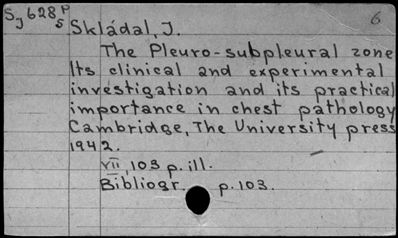 Sj 628 P
5
6
Skládal, J.
The Pleuro-subpleural zone
Its clinical and experimental
investigation and its practical
importance in chest pathology
Cambridge, The University press
1942.
VII, 103 p. ill.
Bibliogr. p. 103.